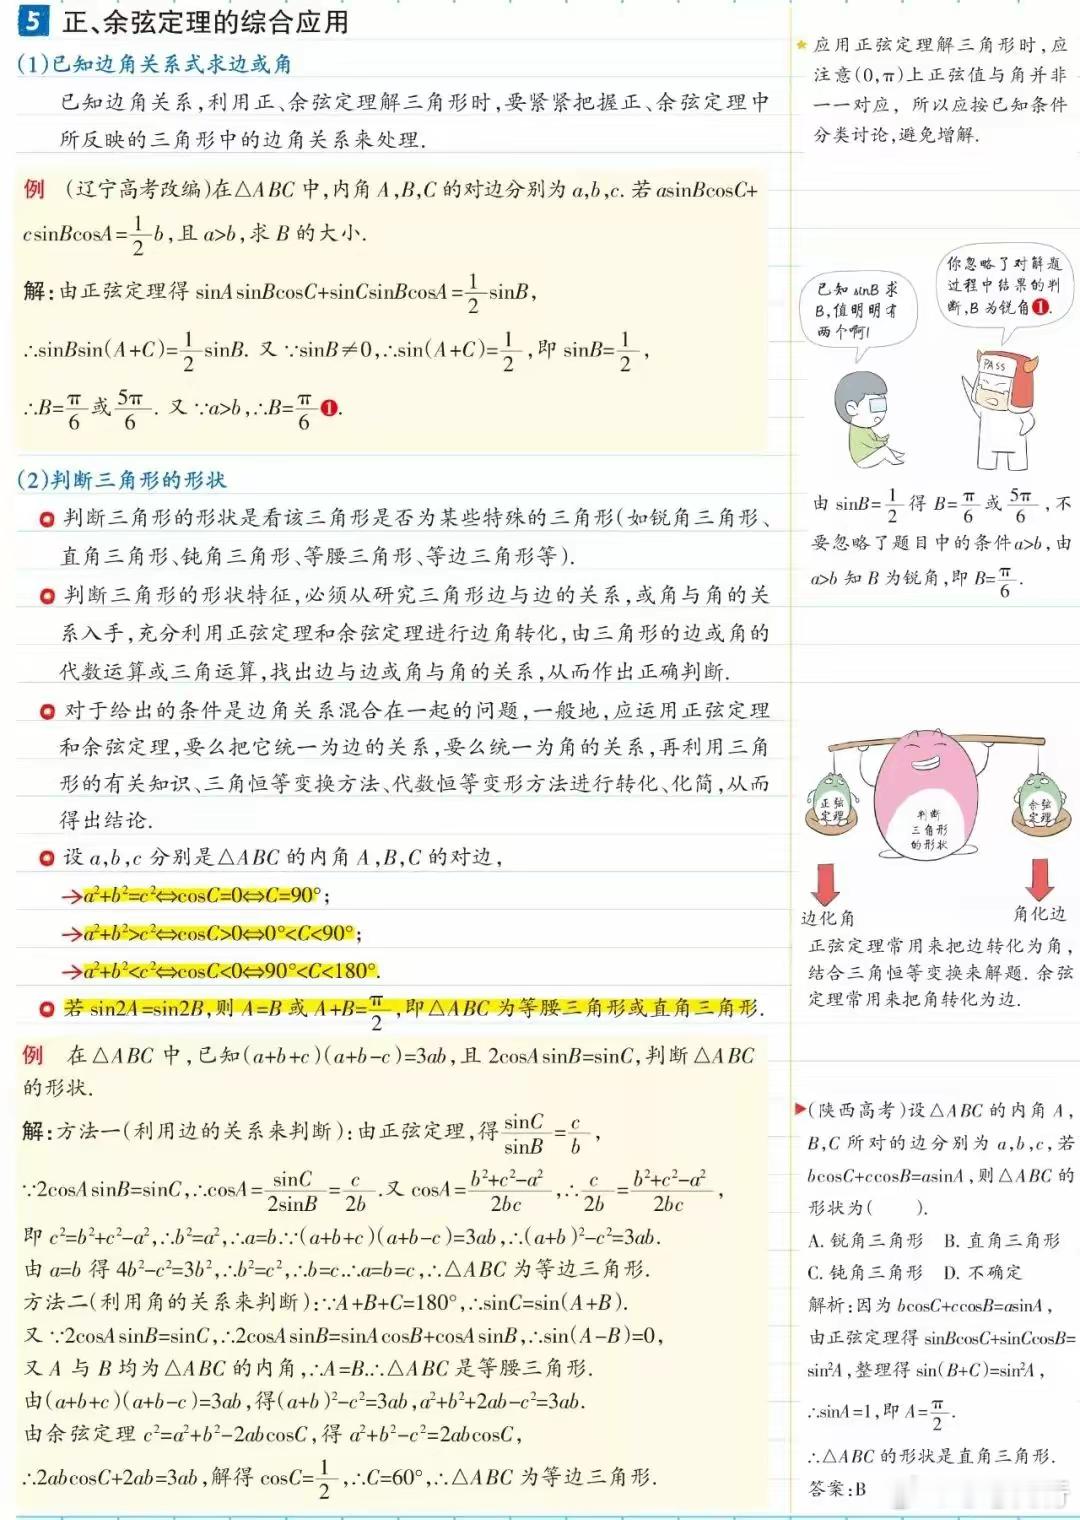 5 正、余弦定理的综合应用
(1)已知边角关系式求边或角
已知边角关系,利用正、余弦定理解三角形时,要紧紧把握正、余弦定理中
所反映的三角形中的边角关系来处理.
例 (辽宁高考改编)在△ABC中,内角A,B,C的对边分别为a,b,c.若asinBcosC+
csinBcosA=1/2b,且a>b,求B的大小.
解:由正弦定理得 sinAsinBcosC+sinCsinBcosA=1/2sinB,
∴sinBsin(A+C)=1/2sinB. 又∵sinB≠0,∴sin(A+C)=1/2,即sinB=1/2,
∴B=π/6或5π/6. 又∵a>b,∴B=π/6❶.
(2)判断三角形的形状
判断三角形的形状是看该三角形是否为某些特殊的三角形(如锐角三角形、
直角三角形、钝角三角形、等腰三角形、等边三角形等).
判断三角形的形状特征,必须从研究三角形边与边的关系,或角与角的关
系入手,充分利用正弦定理和余弦定理进行边角转化,由三角形的边或角的
代数运算或三角运算,找出边与边或角与角的关系,从而作出正确判断.
对于给出的条件是边角关系混合在一起的问题,一般地,应运用正弦定理
和余弦定理,要么把它统一为边的关系,要么统一为角的关系,再利用三角
形的有关知识、三角恒等变换方法、代数恒等变形方法进行转化、化简,从而
得出结论.
设a,b,c分别是△ABC的内角A,B,C的对边,
→a²+b²=c²⇔cosC=0⇔C=90°;
→a²+b²>c²⇔cosC>0⇔0°<C<90°;
→a²+b²<c²⇔cosC<0⇔90°<C<180°.
若sin2A=sin2B,则A=B或A+B=π/2,即△ABC为等腰三角形或直角三角形.
例 在△ABC中,已知(a+b+c)(a+b-c)=3ab,且2cosAsinB=sinC,判断△ABC
的形状.
解:方法一(利用边的关系来判断):由正弦定理,得sinC/sinB=c/b,
∵2cosAsinB=sinC,∴cosA=sinC/2sinB=c/2b.又cosA=b²+c²-a²/2bc,∴c/2b=b²+c²-a²/2bc,
即c²=b²+c²-a²,∴b²=a²,∴a=b.∵(a+b+c)(a+b-c)=3ab,∴(a+b)²-c²=3ab.
由a=b得4b²-c²=3b²,∴b²=c²,∴b=c.∴a=b=c,∴△ABC为等边三角形.
方法二(利用角的关系来判断):∵A+B+C=180°,∴sinC=sin(A+B).
又∵2cosAsinB=sinC,∴2cosAsinB=sinAcosB+cosAsinB,∴sin(A-B)=0,
又A与B均为△ABC的内角,∴A=B.∴△ABC是等腰三角形.
由(a+b+c)(a+b-c)=3ab,得(a+b)²-c²=3ab,a²+b²+2ab-c²=3ab.
由余弦定理c²=a²+b²-2abcosC,得a²+b²-c²=2abcosC,
∴2abcosC+2ab=3ab,解得cosC=1/2,∴C=60°,∴△ABC为等边三角形.
★应用正弦定理解三角形时,应
注意(0,π)上正弦值与角并非
一一对应, 所以应按已知条件
分类讨论,避免增解.
已知sinB求
B,值明明有
两个啊!
你忽略了对解题
过程中结果的判
断,B为锐角❶.
PASS
由sinB=1/2得B=π/6或5π/6,不
要忽略了题目中的条件a>b,由
a>b知B为锐角,即B=π/6.
正弦
定理
判断
三角形
的形状
余弦
定理
边化角
角化边
正弦定理常用来把边转化为角,
结合三角恒等变换来解题. 余弦
定理常用来把角转化为边.
▶(陕西高考)设△ABC的内角A,
B,C所对的边分别为a,b,c,若
bcosC+ccosB=asinA,则△ABC的
形状为( ).
A. 锐角三角形 B. 直角三角形
C. 钝角三角形 D. 不确定
解析:因为bcosC+ccosB=asinA,
由正弦定理得sinBcosC+sinCcosB=
sin²A,整理得sin(B+C)=sin²A,
∴sinA=1,即A=π/2.
∴△ABC的形状是直角三角形.
答案:B